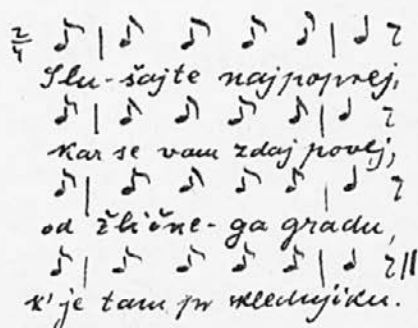 2/4
Slu-šajte najpoprej,
kar se vam zdaj povej,
od žlične-ga gradu,
k' je tam pr